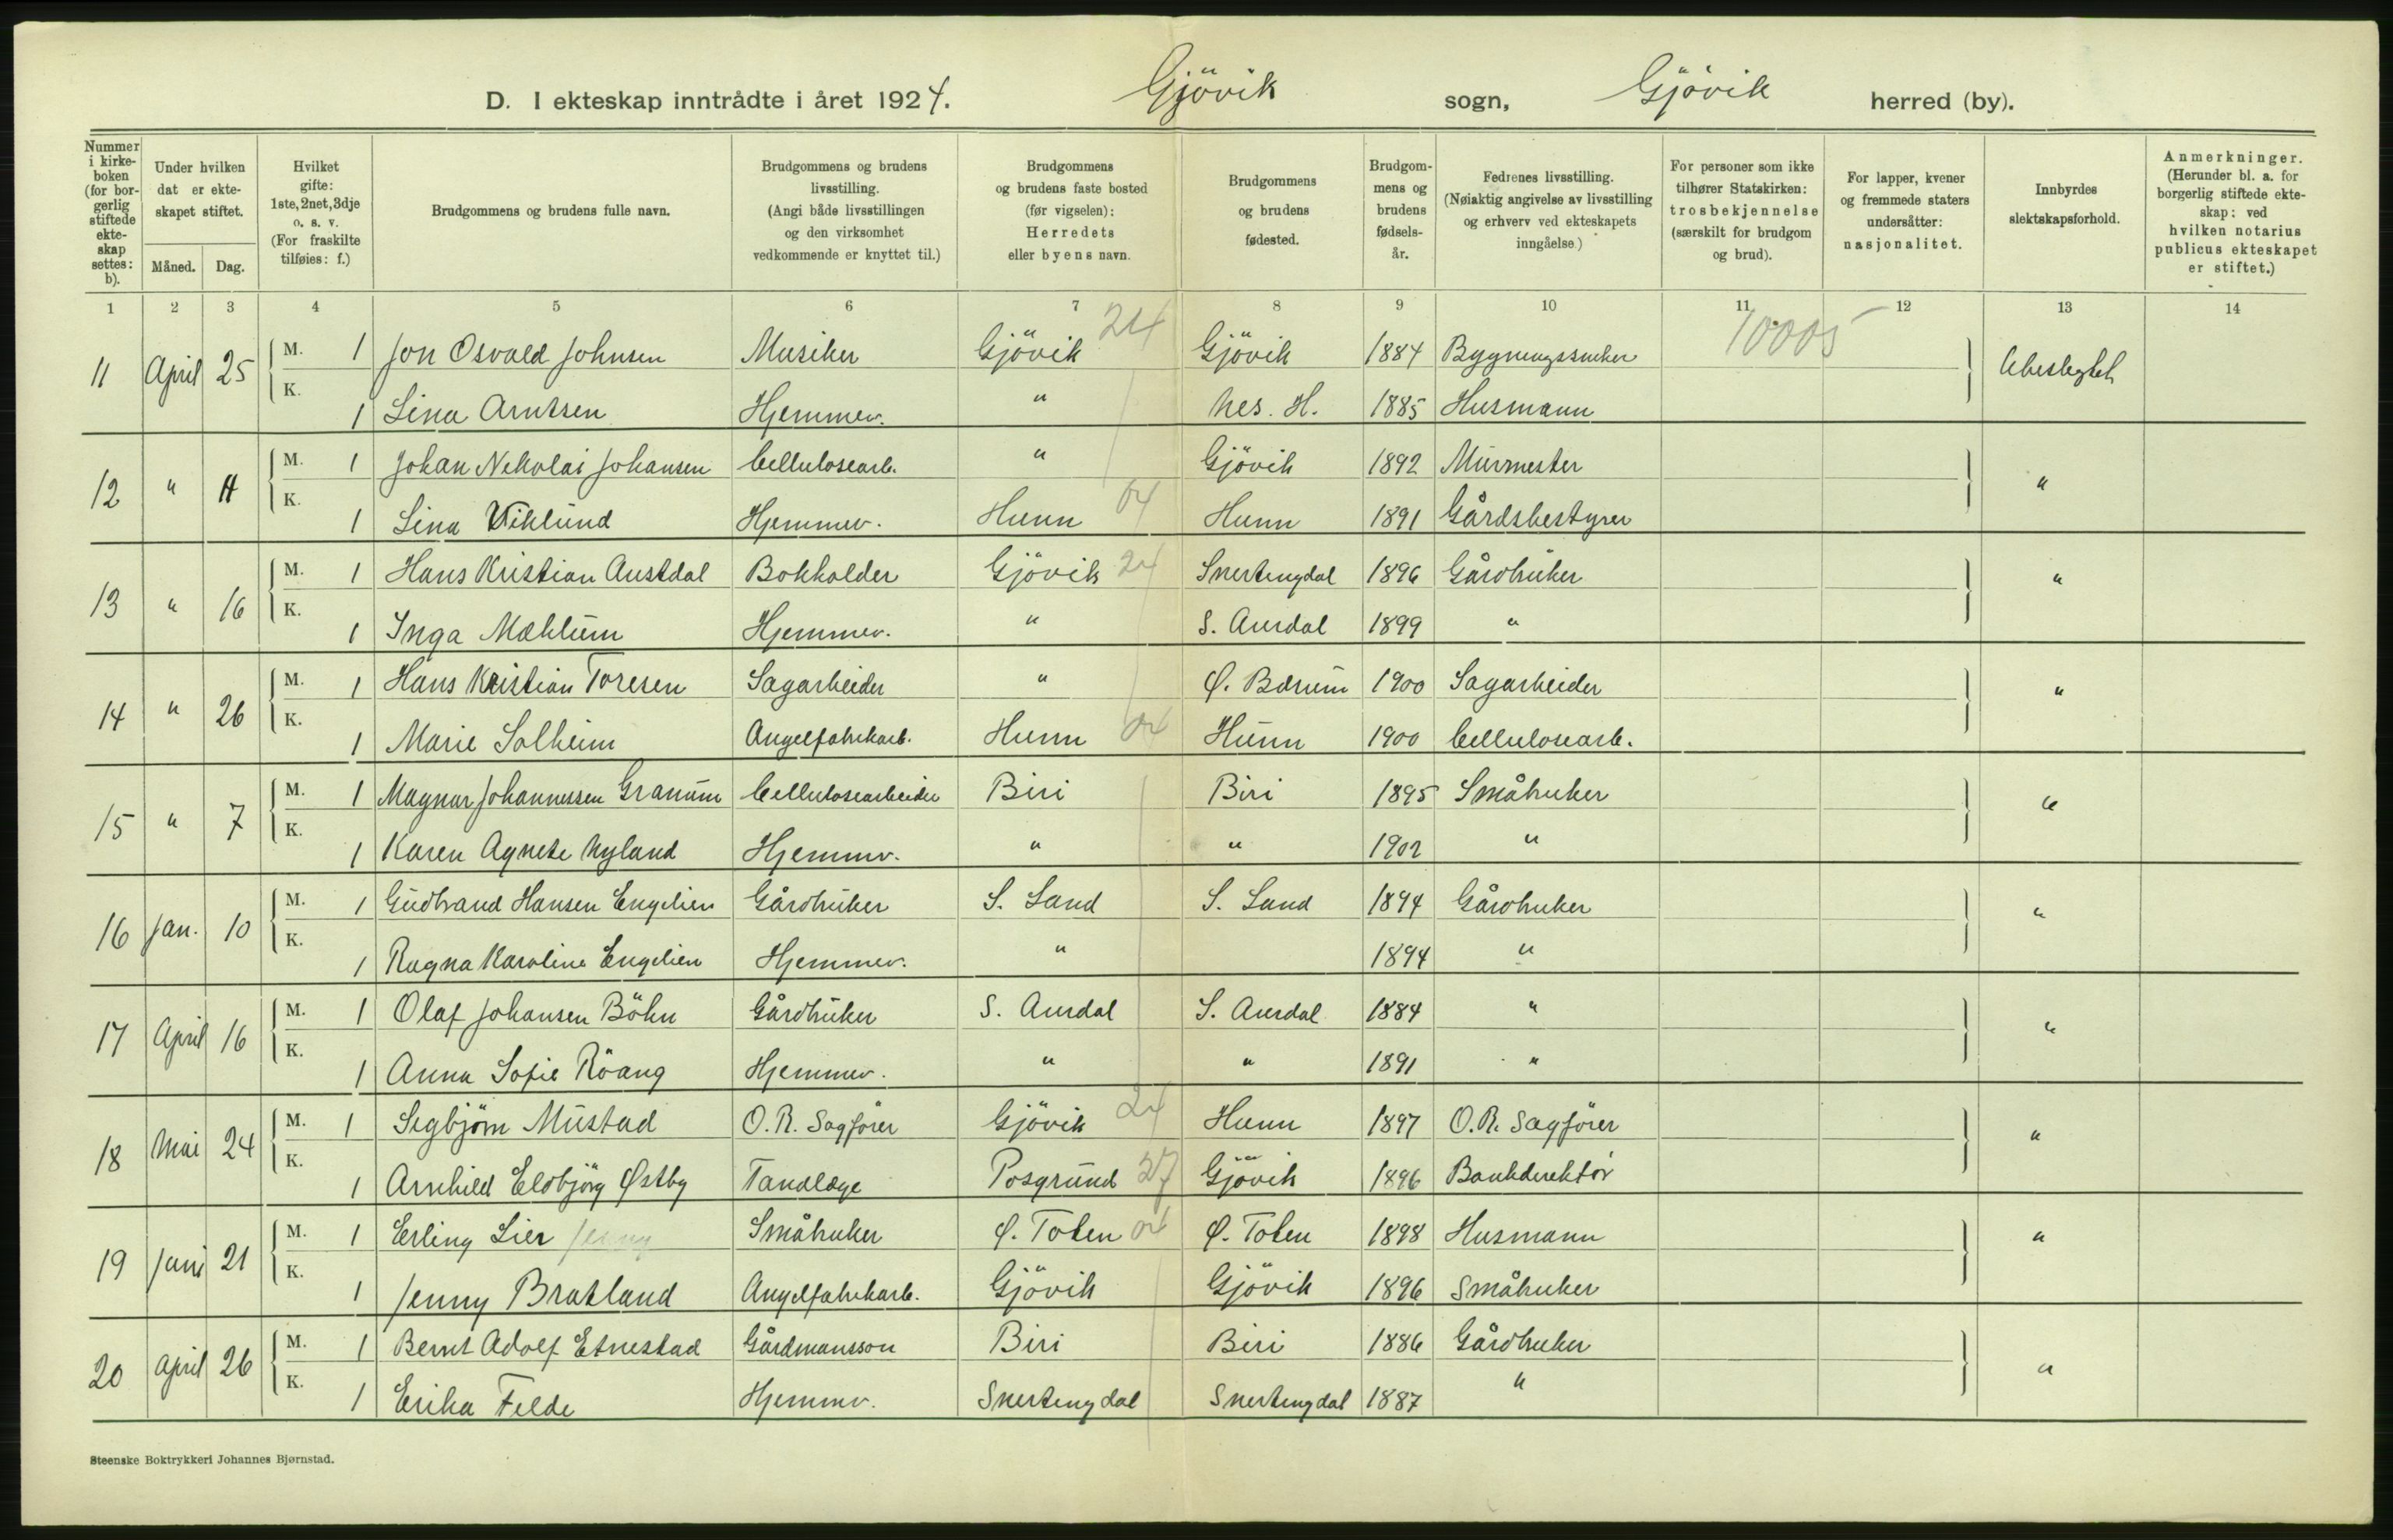 D. I ekteskap inntrådte i året 1924. Gjövik sogn, Gjövik herred (by).
Nummer i kirkeboken (for borgerlig stiftede ekteskap settes: b). | Under hvilken dato er ekteskapet stiftet. Måned. Dag. | Hvilket gifte: 1ste, 2net, 3dje o. s. v. (For fraskilte tilføies: f.) | Brudgommens og brudens fulle navn. | Brudgommens og brudens livsstilling. (Angi både livsstillingen og den virksomhet vedkommende er knyttet til.) | Brudgommens og brudens faste bosted (før vigselen): Herredets eller byens navn. | Brudgommens og brudens fødested. | Brudgommens og brudens fødselsår. | Fedrenes livsstilling. (Nøiaktig angivelse av livsstilling og erhverv ved ekteskapets inngåelse.) | For personer som ikke tilhører Statskirken: trosbekjennelse (særskilt for brudgom og brud). | For lapper, kvener og fremmede staters undersåtter: nasjonalitet. | Innbyrdes slektskapsforhold. | Anmerkninger. (Herunder bl. a. for borgerlig stiftede ekteskap: ved hvilken notarius publicus ekteskapet er stiftet.)
1 2 3 4 5 6 7 8 9 10 11 12 13 14
11 April 25 M. 1 Jon Osvald Johnsen Musiker Gjövik 24 Gjövik 1884 Bygningssneker 10005 Ubeslegtet
K. 1 Lina Arntsen Hjemmev. " Nes. H. 1885 Husmann
12 " 14 M. 1 Johan Nikolai Johansen Cellulosearb. " Gjövik 1892 Murmester "
K. 1 Lina Viklund Hjemmev. Hunn 04 Hunn 1891 Gårdsbestyrer
13 " 16 M. 1 Hans Kristian Austdal Bokholder Gjövik 24 Snertengdal 1896 Gårdbruker "
K. 1 Inga Mæhlum Hjemmev. " S. Aurdal 1899 "
14 " 26 M. 1 Hans Kristian Toresen Sagarbeider " Ø. Bærum 1900 Sagarbeider "
K. 1 Marie Solheim Angelfabrikarb. Hunn 04 Hunn 1900 Cellulosearb.
15 " 7 M. 1 Magnar Johannessen Granum Cellulosearbeider Biri Biri 1895 Småbruker "
K. 1 Karen Agnete Nyland Hjemmv. " " 1902 "
16 Jan. 10 M. 1 Gudbrand Hansen Engelien Gårdbruker S. Land S. Land 1894 Gårdbruker "
K. 1 Ragna Karoline Engelien Hjemmev. " 1894 "
17 April 16 M. 1 Olaf Johansen Böhn Gårdbruker S. Aurdal S. Aurdal 1884 " "
K. 1 Anna Sofie Röang Hjemmev. " " 1891 "
18 Mai 24 M. 1 Sigbjörn Mustad O. R. Sagförer Gjövik 24 Hunn 1897 O. R. Sagförer "
K. 1 Arnhild Eldbjörg Østby Tandlæge Posgrund 37 Gjövik 1896 Bankdirektör
19 Juni 21 M. 1 Erling Lier Jenny Småbruker Ø. Toten 04 Ø. Toten 1898 Husmann "
K. 1 Jenny Bratland Angelfabrikarb. Gjövik Gjövik 1896 Småbruker
20 April 26 M. 1 Bernt Adolf Etnestad Gårdmansson Biri Biri 1886 Gårdbruker "
K. 1 Erika Felde Hjemmv. Snertengdal Snertengdal 1887 "
Steenske Boktrykkeri Johannes Bjørnstad.